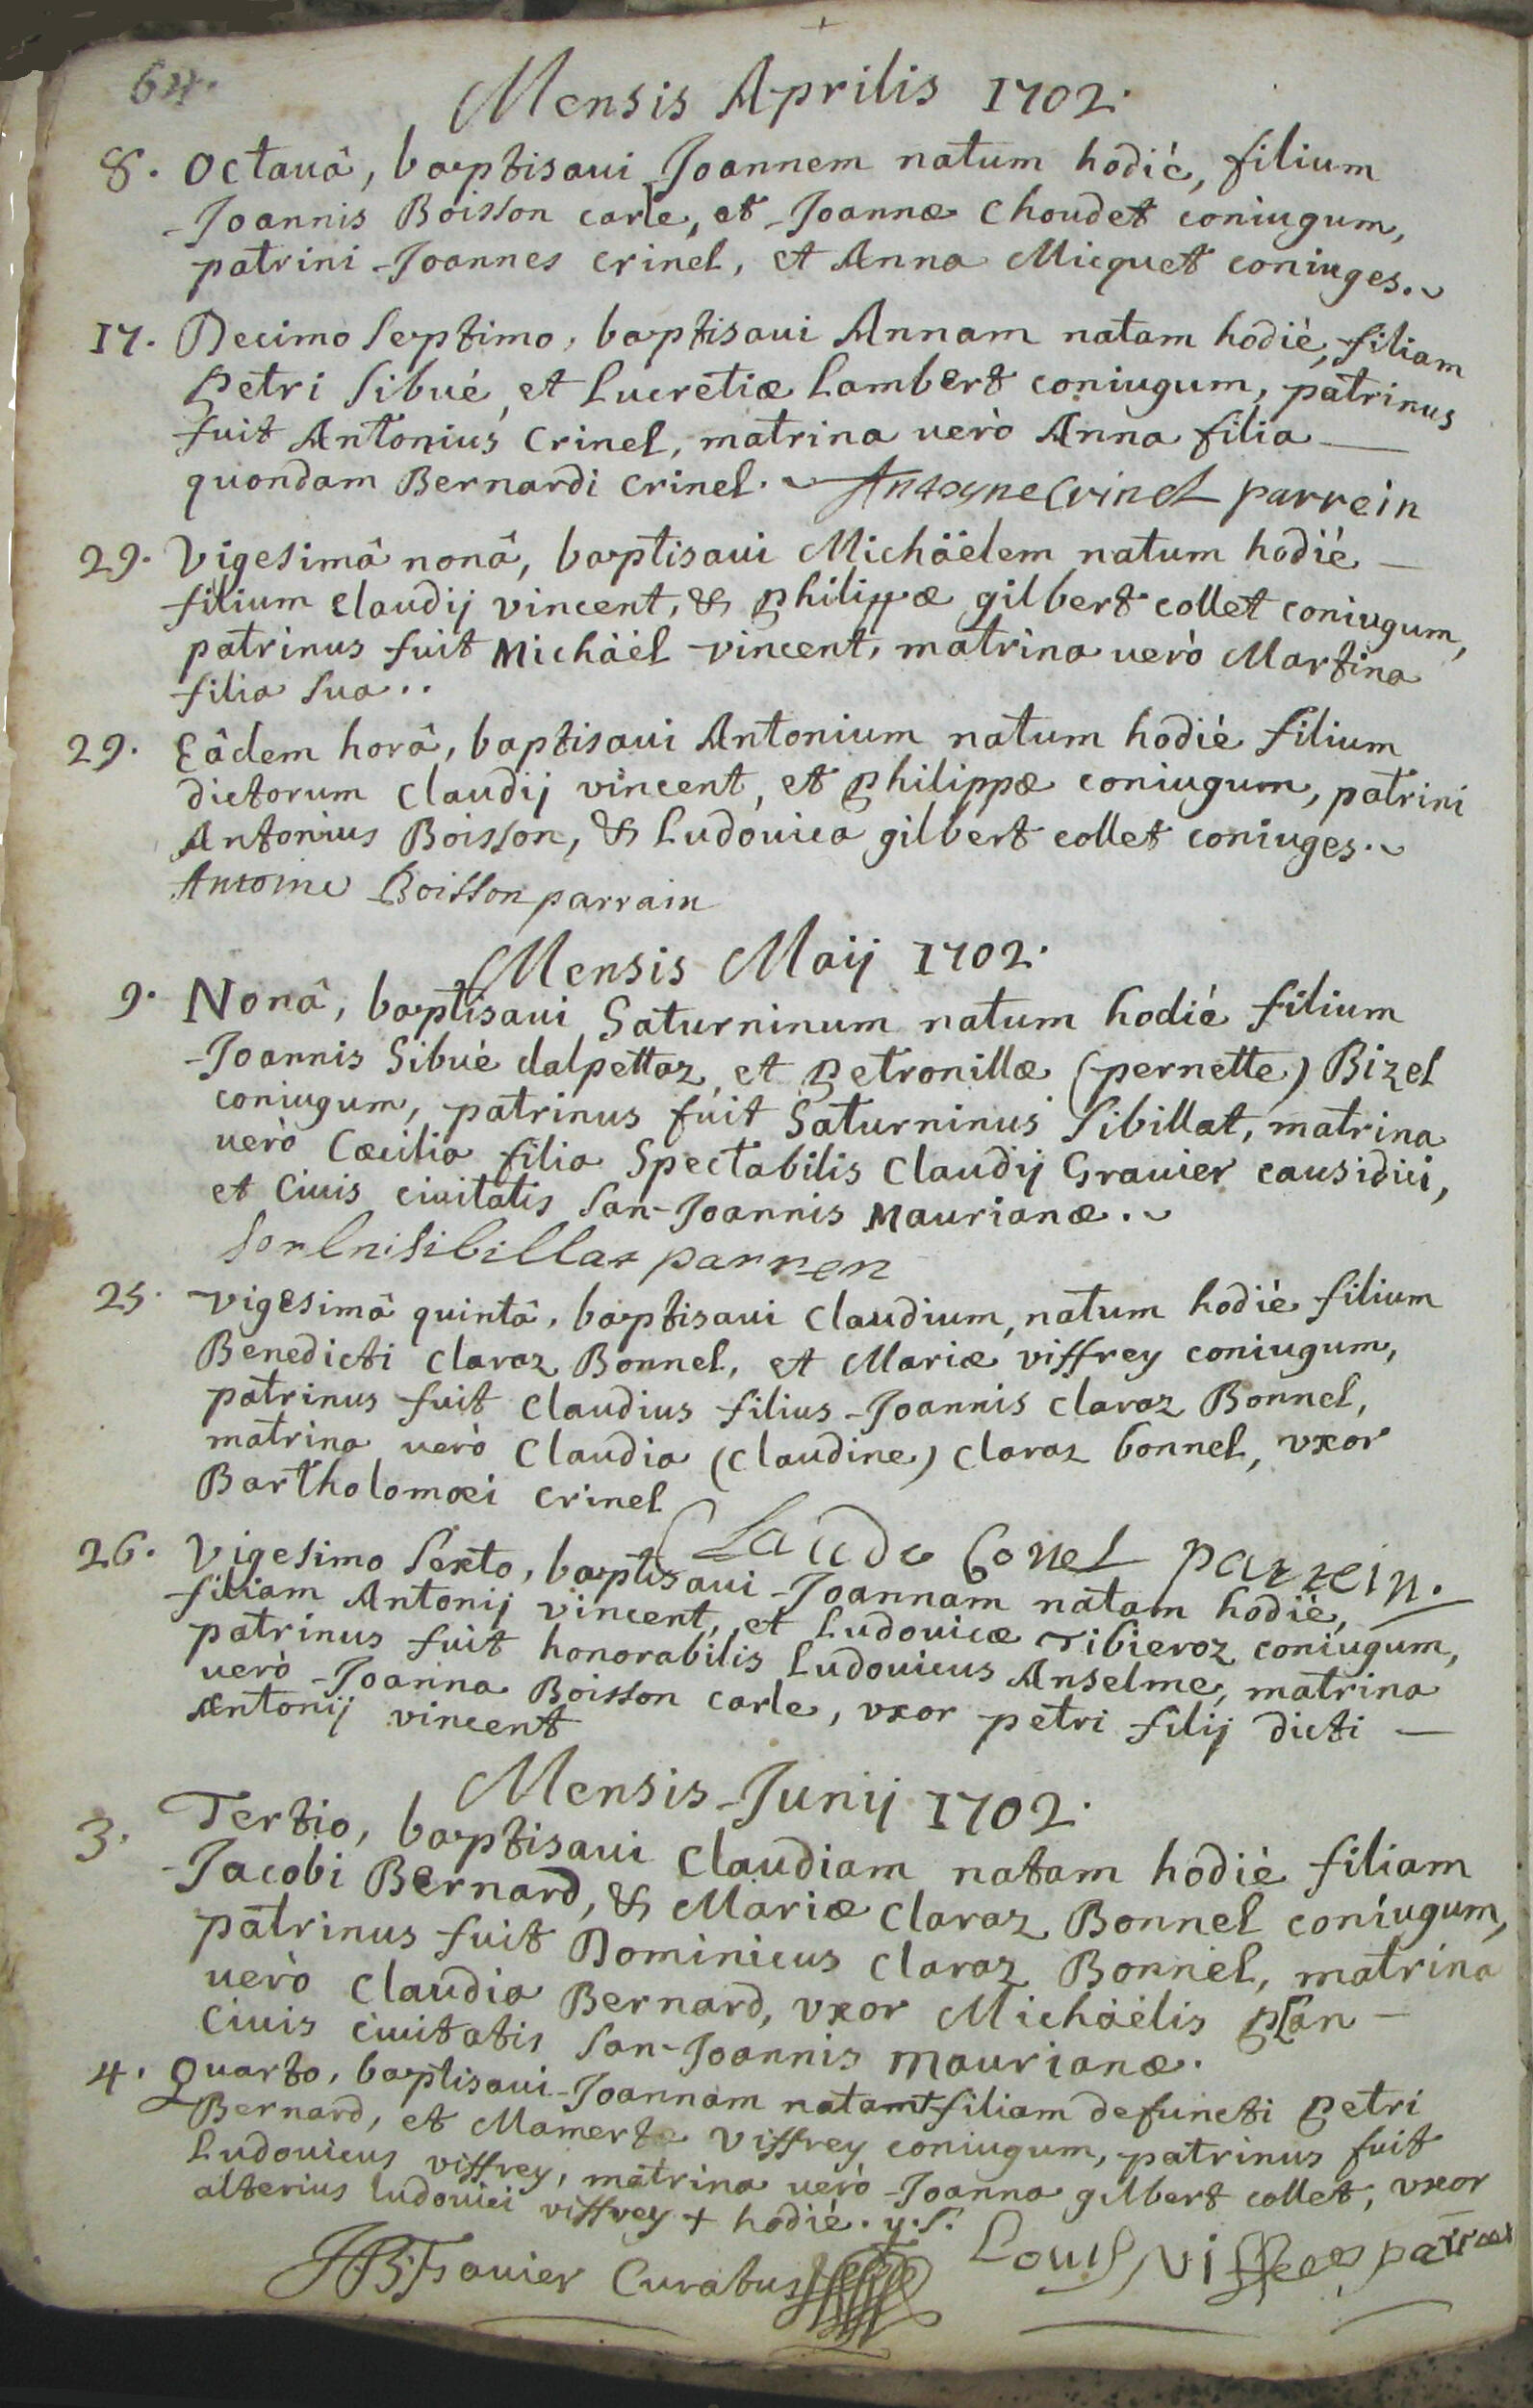 64.
Mensis Aprilis 1702.
8. Octauâ, baptisaui Joannem natum hodiè, filium
Joannis Boisson carle, et Joannæ Choudet coniugum,
patrini Joannes Crinel, et Anna Micquet coniuges.
17. Decimo Septimo, baptisaui Annam natam hodiè, filiam
Petri Sibué, et Lucretiæ Lambert coniugum, patrinus
fuit Antonius Crinel, matrina uerò Anna filia
quondam Bernardi Crinel. Antoyne Crinel parrein
29. Vigesimâ nonâ, baptisaui Michäelem natum hodiè
filium Claudij vincent, & Philippæ gilbert collet coniugum,
patrinus fuit Michäel vincent, matrina uerò Martina
filia sua..
29. Eâdem horâ, baptisaui Antonium natum hodiè filium
dictorum Claudij vincent, et Philippæ coniugum, patrini
Antonius Boisson, & Ludouica gilbert collet coniuges.
Antoine Boisson parrain
Mensis Maij 1702.
9. Nonâ, baptisaui Saturninum natum hodiè filium
Joannis Sibué dalpettaz, et Petronillæ (pernette) Bizel
coniugum, patrinus fuit Saturninus Sibillat, matrina
uerò Cæcilia filia Spectabilis Claudij Grauier causidici,
et Ciuis ciuitatis San-Joannis Maurianæ.
Sorlni Sibillat parren
25. vigesimâ quintâ, baptisaui Claudium, natum hodiè filium
Benedicti Claraz Bonnel, et Mariæ viffrey coniugum,
patrinus fuit Claudius filius Joannis Claraz Bonnel,
matrina uerò Claudia (Claudine) Claraz bonnel, vxor
Bartholomæi Crinel
Claude Bonel parrein.
26. Vigesimo Sexto, baptisaui Joannam natam hodiè,
filiam Antonij vincent, et Ludouicæ Tibieroz coniugum,
patrinus fuit honorabilis Ludouicus Anselme, matrina
uerò Joanna Boisson carle, vxor petri filij dicti
Antonij vincent
Mensis Junij 1702.
3. Tertio, baptisaui Claudiam natam hodiè filiam
Jacobi Bernard, & Mariæ Claraz Bonnel coniugum,
patrinus fuit Dominicus Claraz Bonnel, matrina
uerò Claudia Bernard, vxor Michäelis Plan
Ciuis Ciuitatis San-Joannis Maurianæ.
4. Quarto, baptisaui Joannam natam+ filiam defuncti Petri
Bernard, et Mamertæ Viffrey coniugum, patrinus fuit
Ludouicus viffrey, matrina uerò Joanna gilbert collet, vxor
alterius ludouici viffrey + hodiè. y. S.
Curatus Louis viffrey parrein